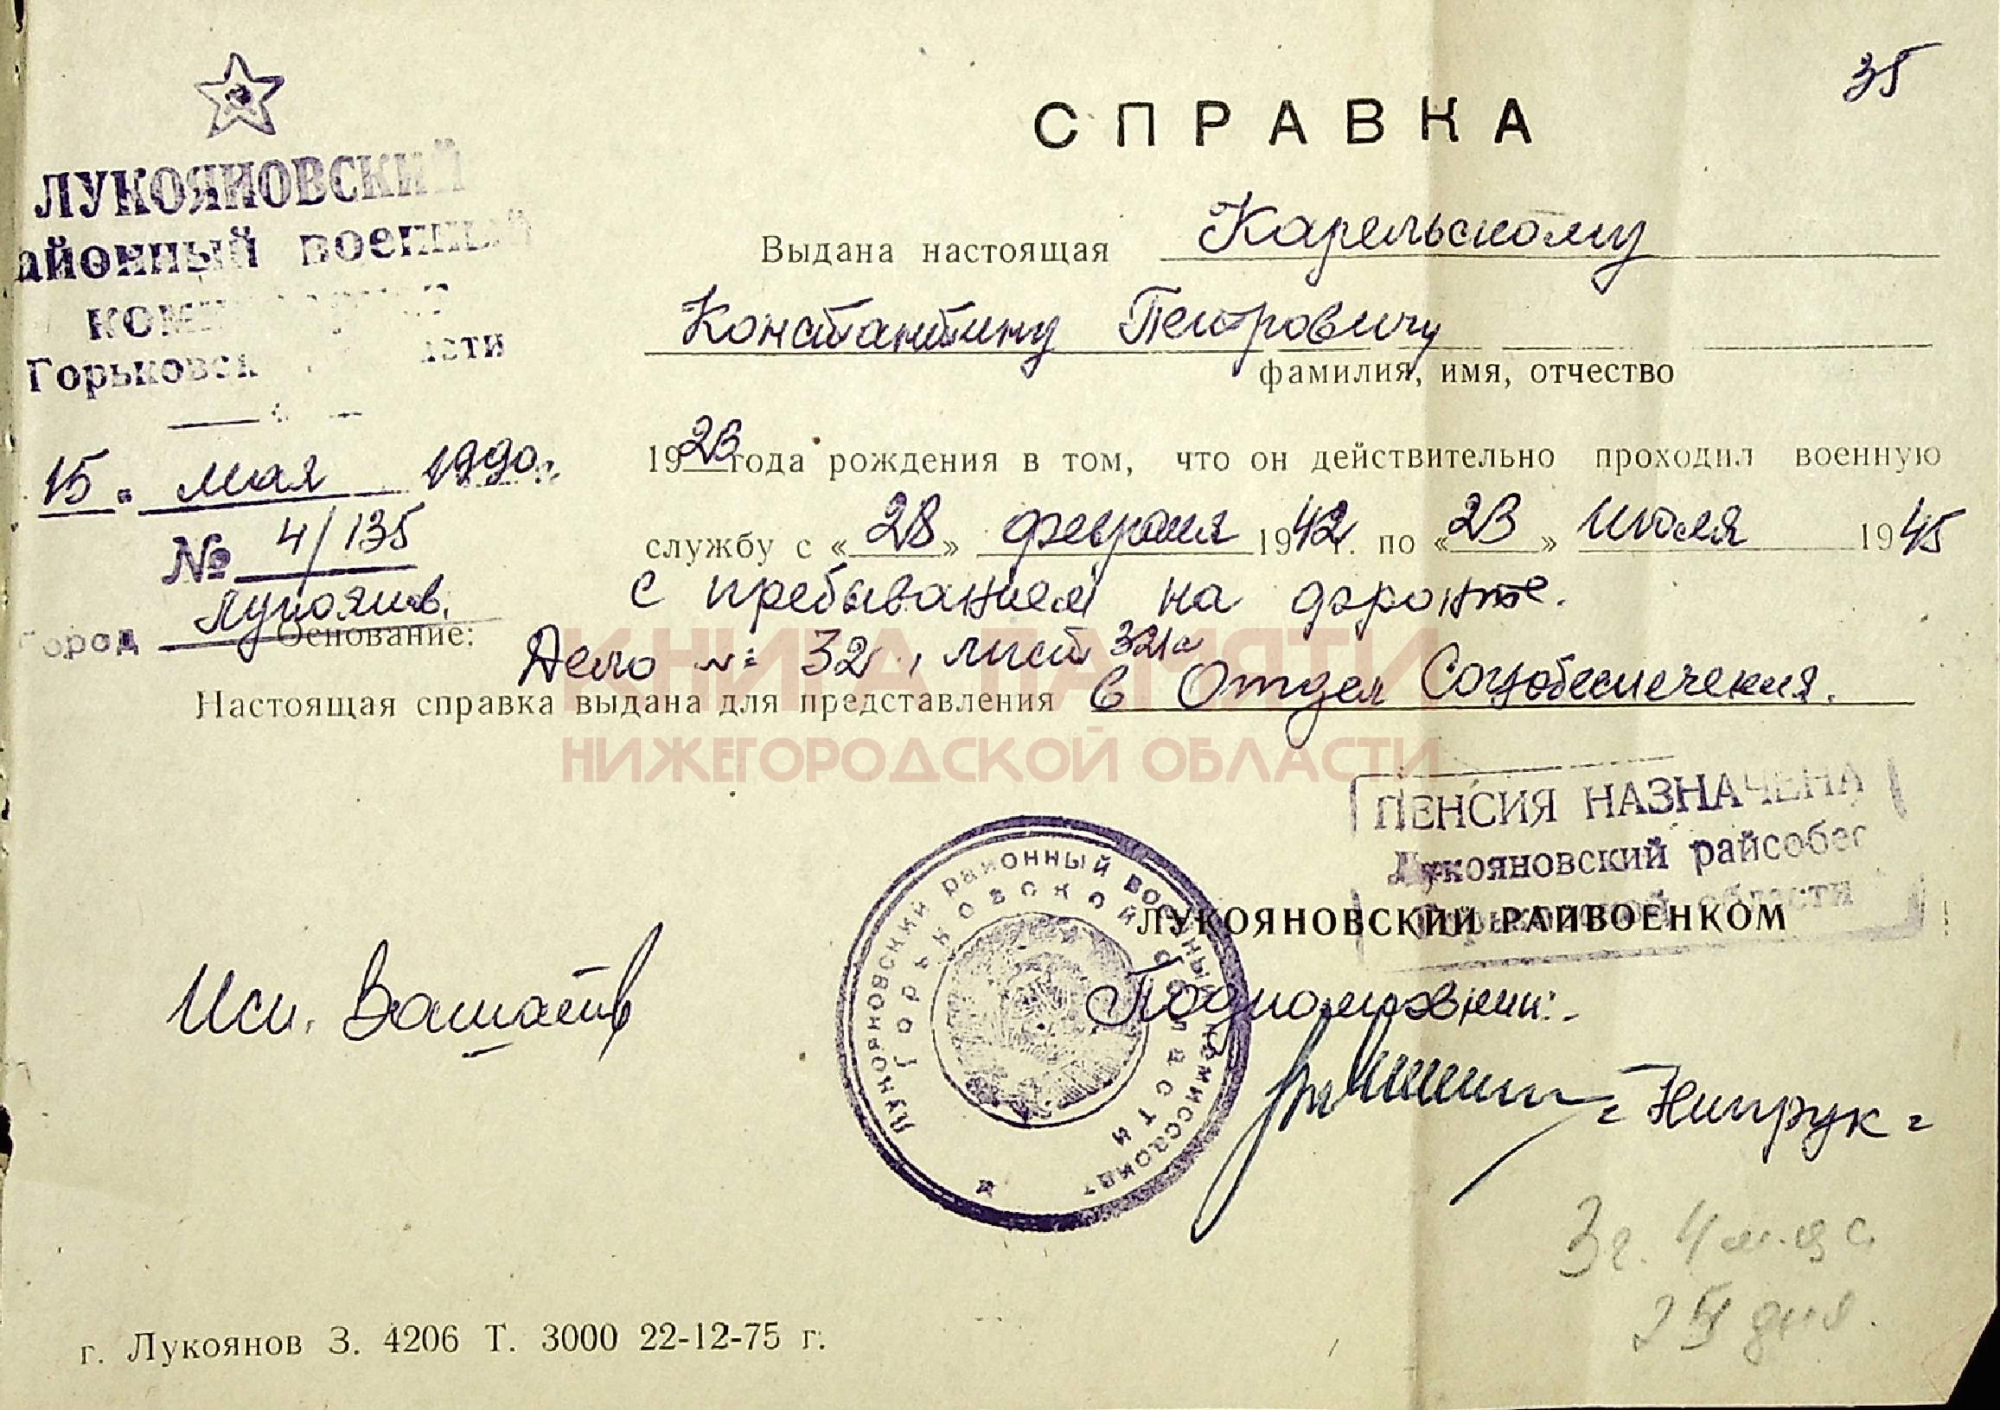 35
СПРАВКА
ЛУКОЯНОВСКИЙ
айонный военный
Горьковск сти
15 " мая 1990г.
№ 4/135
город Лукоянов.
Выдана настоящая Карельскому
Константину Петровичу
фамилия, имя, отчество
1923 года рождения в том, что он действительно проходил военную
службу с « 28 » февраля 1942 г. по « 23 » июля 1945
с пребыванием на фронте.
Основание: Дело № 32, лист 321
Настоящая справка выдана для представления в Отдел Соцобеспечения.
КНИГА ПАМЯТИ
НИЖЕГОРОДСКОЙ ОБЛАСТИ
ПЕНСИЯ НАЗНАЧЕНА
Лукояновский райсобес
Горьковской области
ЛУКОЯНОВСКИЙ РАЙВОЕНКОМ
Подполковник:
Лукояновский районный военный комиссариат
Горьковской области
Исп.
3 г. 4 мес.
дня.
г. Лукоянов З. 4206 Т. 3000 22-12-75 г.